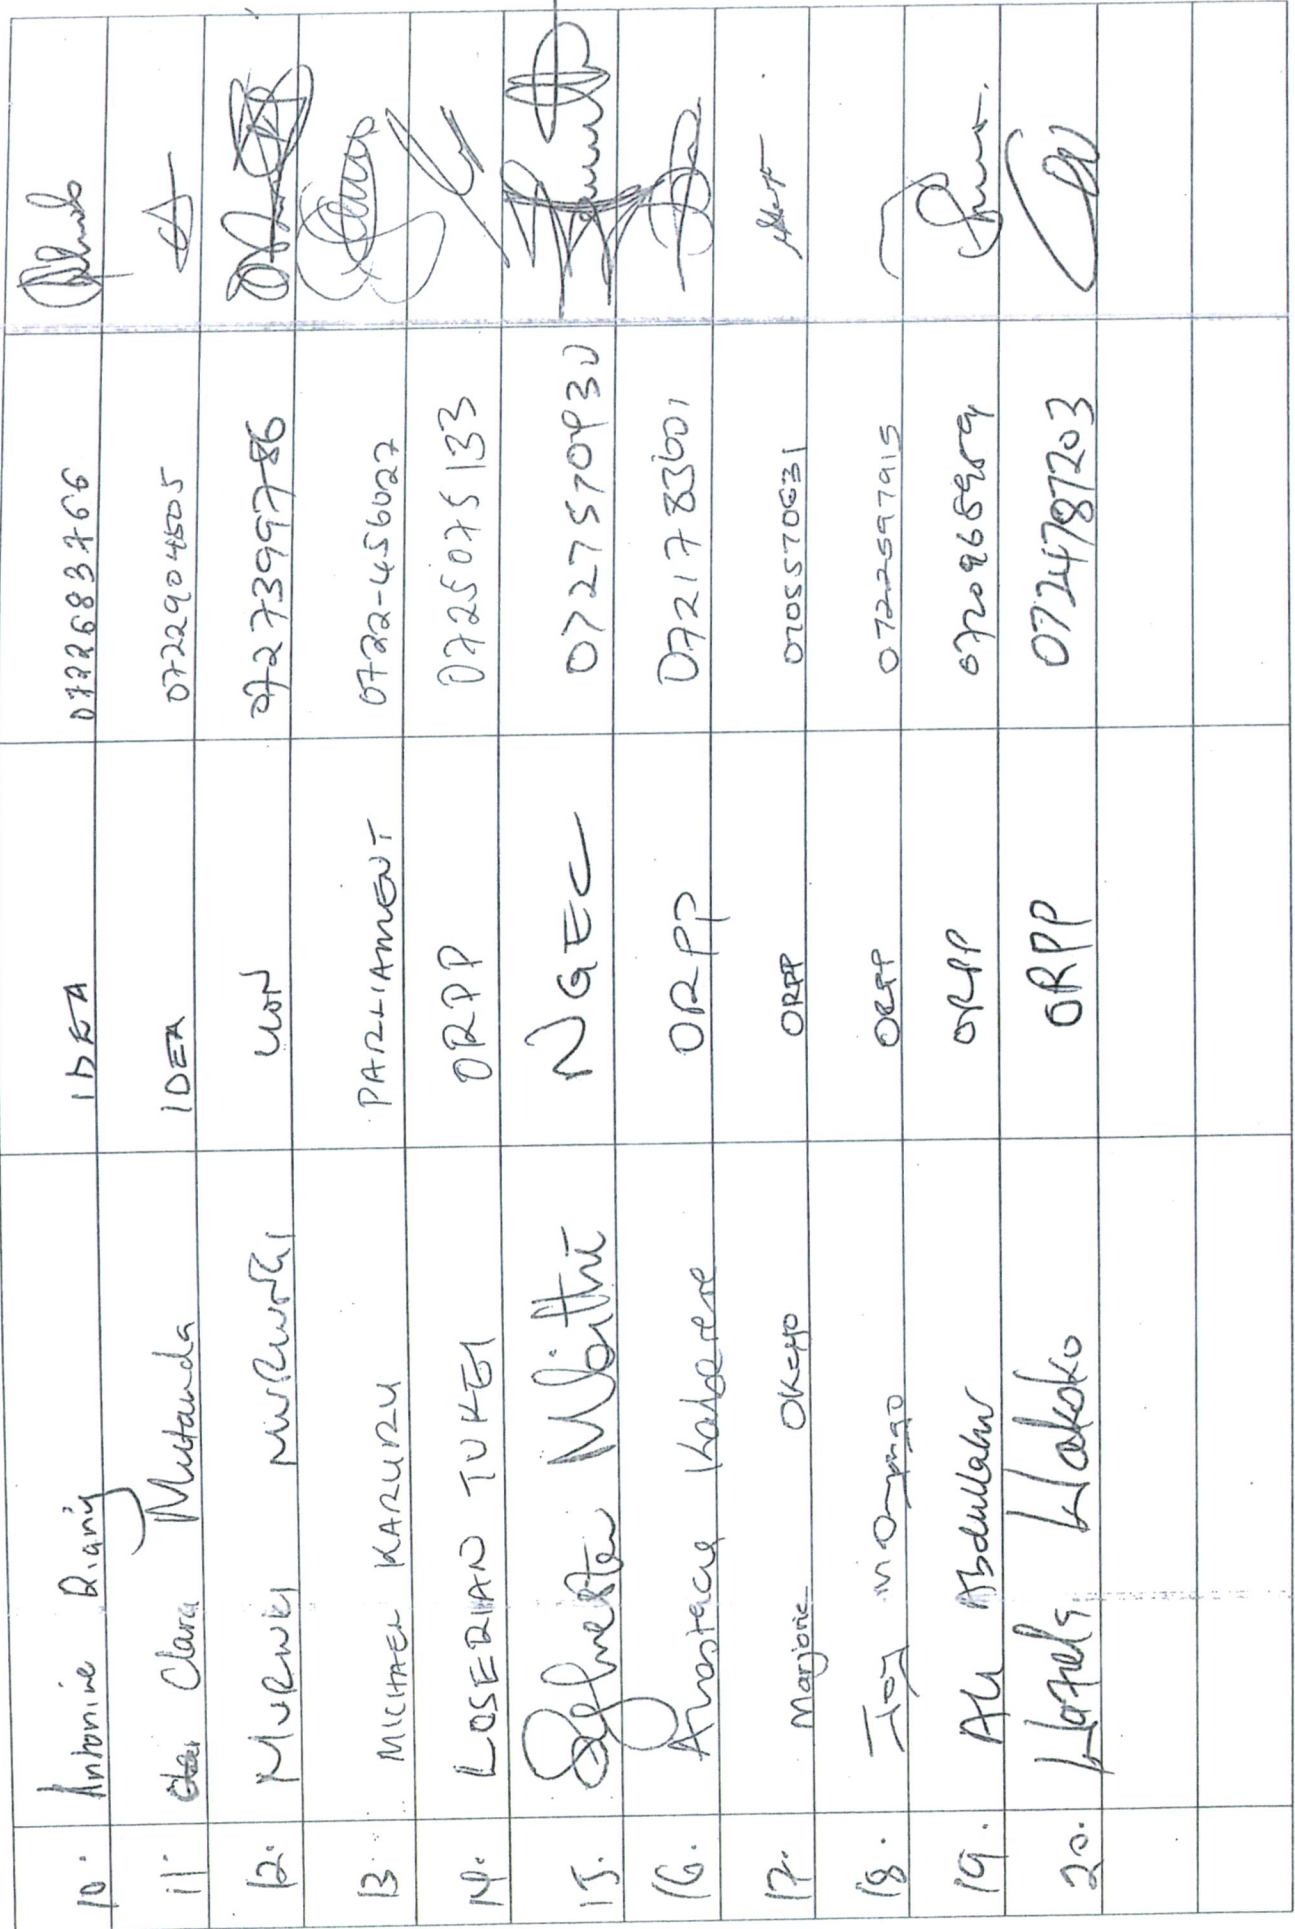 10. Antonine Diang IDEA 0722683766
11. Clara Mutanda IDEA 0722904505
12. MURWEI UON 0727399786
13. MICHAEL KARURU PARLIAMENT 0722-456027
14. LOSERIAN TUKEI ORPP 0725075133
15. Sylvester Mbithi NGEC 0727570930
16. Anastacia Kaberere ORPP 0721783601
17. Marjorie OKEYO ORPP 0705570631
18. Joy ORPP 0722597915
19. Ali Abdullahi ORPP
20. Wafula Wakoko ORPP 0724787203